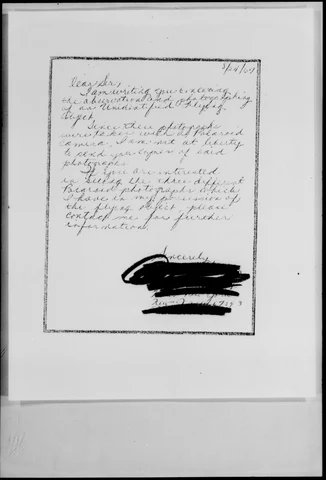 Dear Sir,
I am writing you concerning
the observation and photographing
of an Unidentified Flying
Object.
Since these photographs
were taken with a Polaroid
camera, I am not at liberty
to send you copies of said
photographs.
If you are interested
in seeing the three different
Polaroid photographs which
I have in my possession of
the flying object, please
contact me for further
information.
Sincerely,